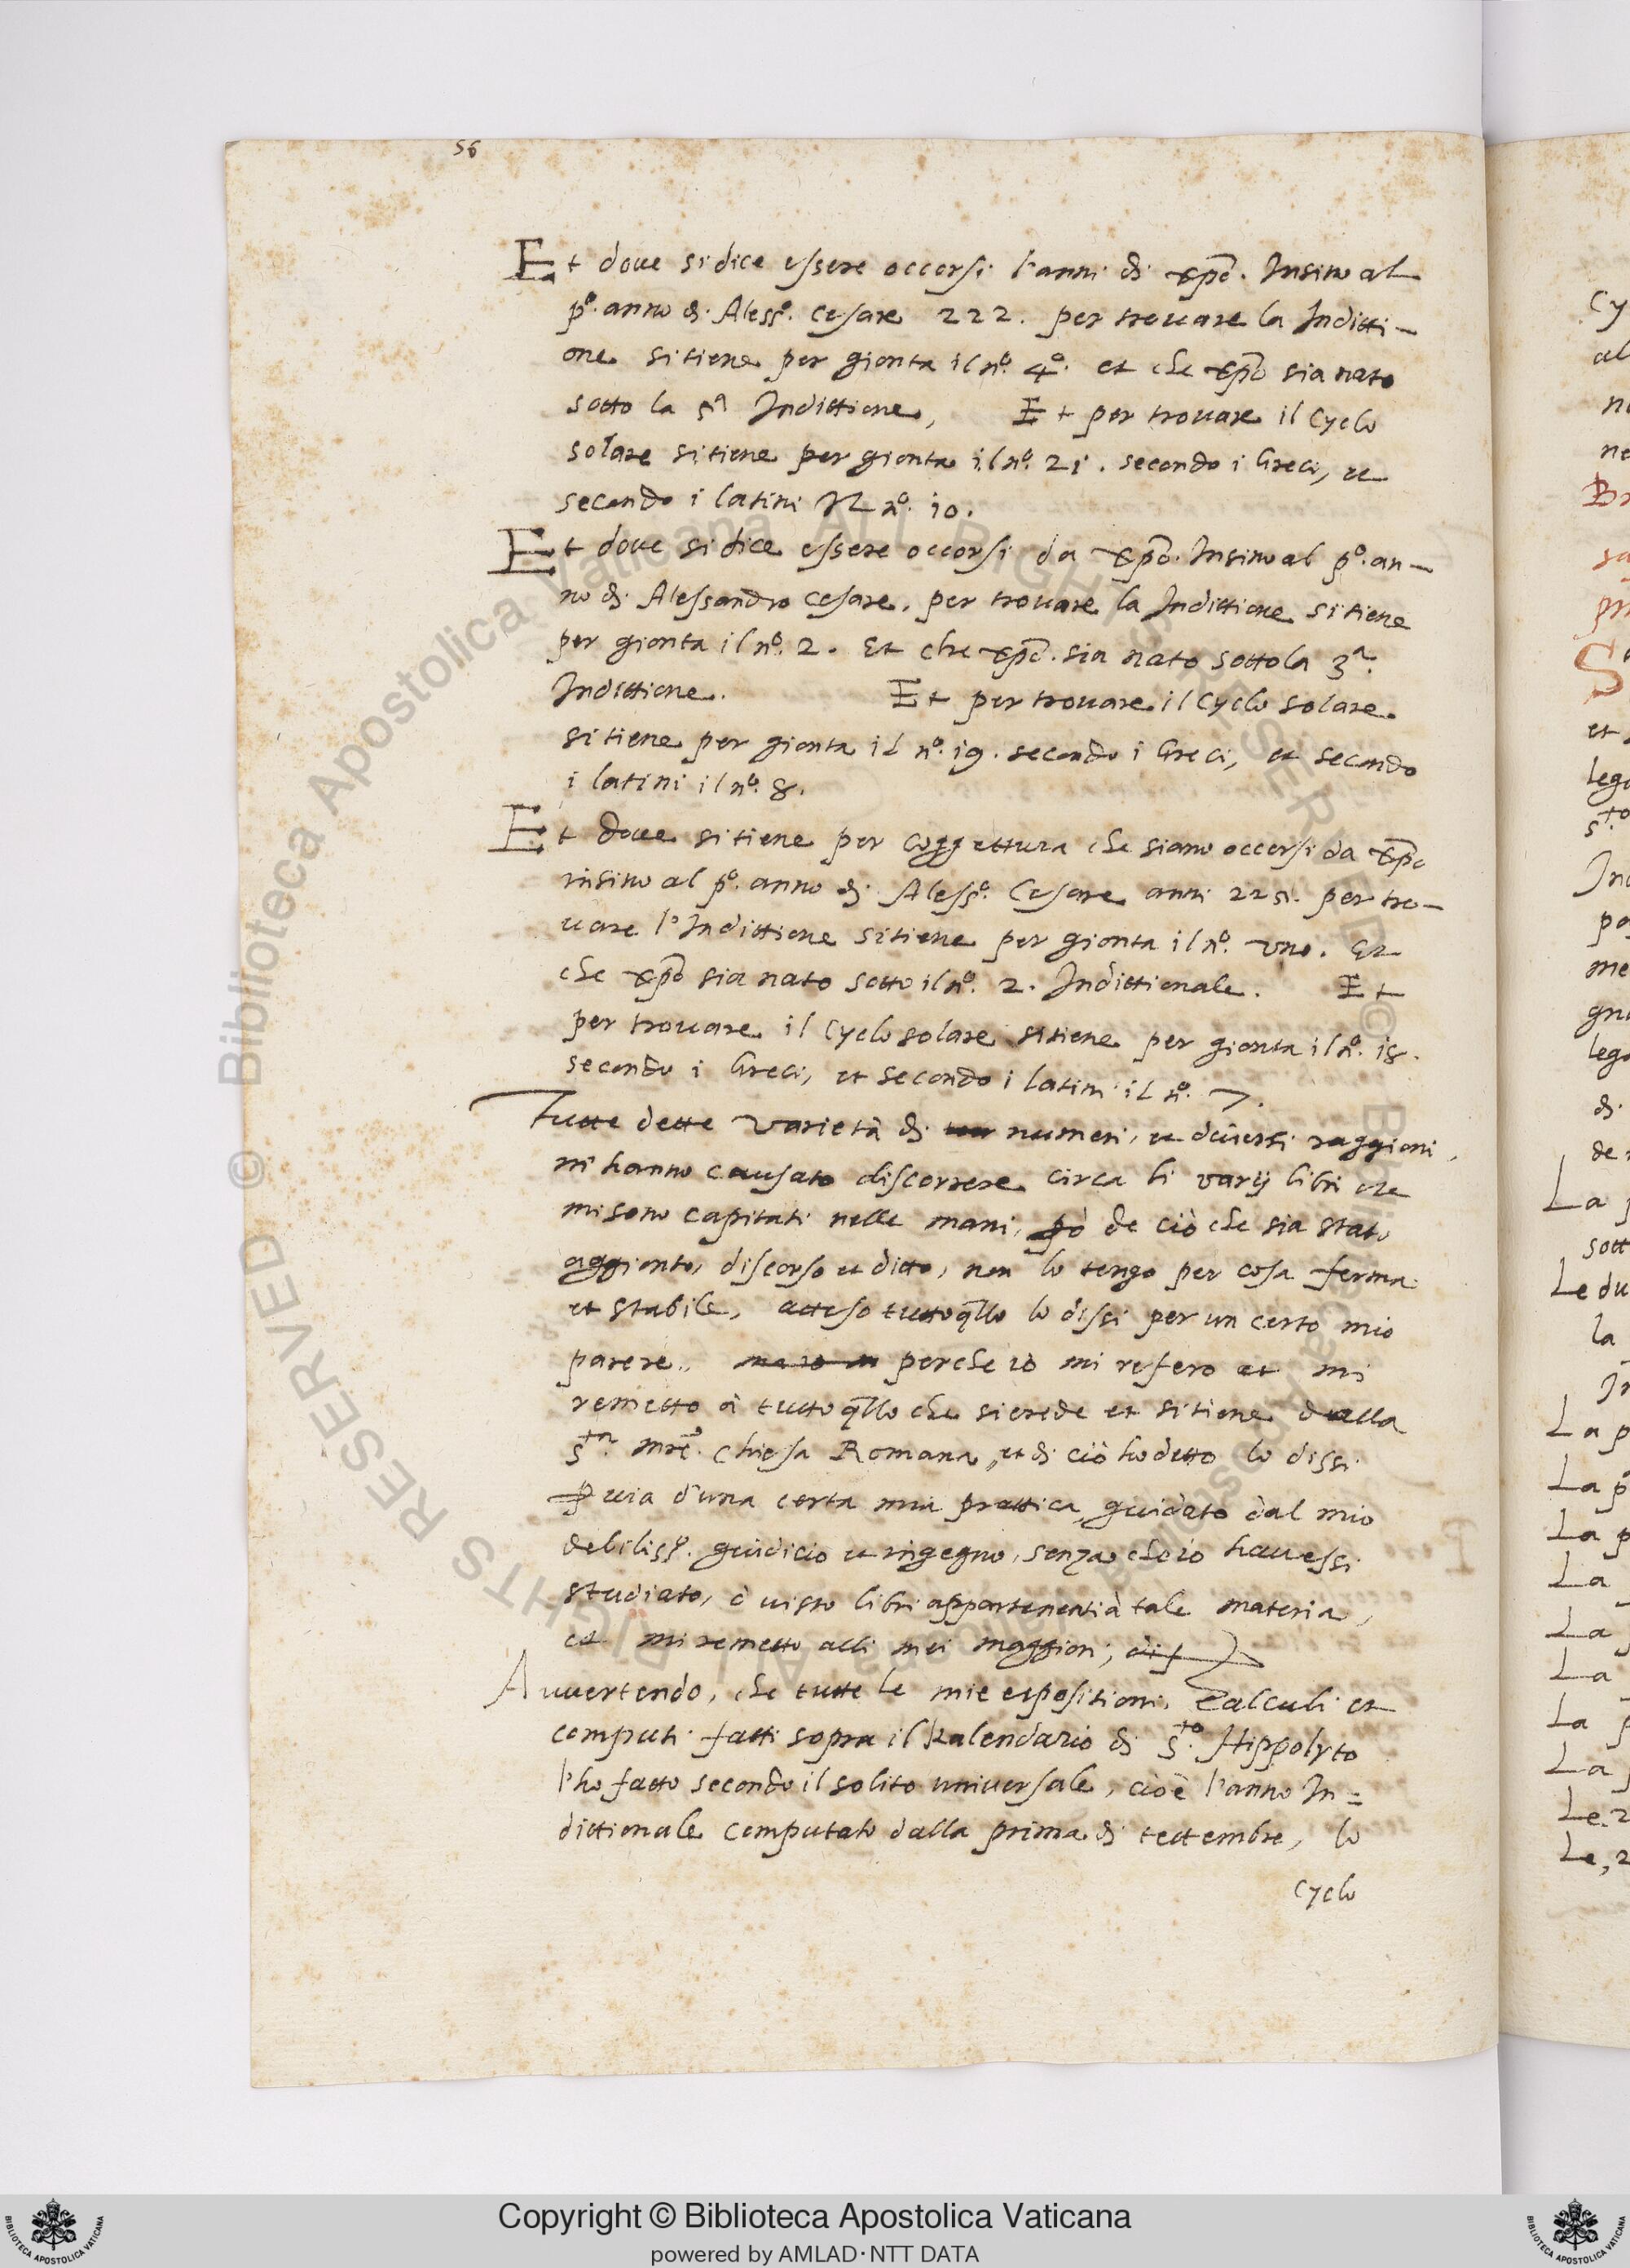 56
Et doue si dice essere occorsi l'anni di xpō. Insino al
p.º anno di Aless.º Cesare 222. per trouare la Inditti-
one si tiene per gionta il n.º 4.º et che xpō sia nato
sotto la 5ª Indittione, Et per trouare il Cyclo
solare si tiene per gionta il n.º 21. secondo i Greci, et
secondo i latini Il n.º 10.
Et doue si dice essere occorsi da xpō. Insino al p.º an-
no di Alessandro Cesare, per trouare la Indittione si tiene
per gionta il n.º 2. Et che xpō. sia nato sotto la 3.ª
Indittione. Et per trouare il Cyclo solare
si tiene per gionta il n.º 19. secondo i Greci, et secondo
i latini il n.º 8.
Et doue si tiene per coggettura che siano occorsi da xpō
insino al p.º anno di Aless.º Cesare anni 225. per tro-
uare l'Indittione si tiene per gionta il n.º vno. Et
che xpō sia nato sotto il n.º 2. Indittionale. Et
per trouare il Cyclo solare si tiene per gionta il n.º 18.
secondo i Greci, et secondo i latini il n.º 7.
Tutte dette varietà di numeri, et diuersi raggioni,
m'hanno causato discorrere circa li varij libri che
mi sono capitati nelle mani, p̄ò de ciò che sia stato
aggionto, discorso et ditto, non lo tengo per cosa ferma
et stabile, atteso tutto q̄llo lo dissi per un certo mio
parere, perche io mi refero et mi
remetto à tutto q̄llo che si crede et si tiene dalla
s.ta mrē. Chiesa Romana, et di ciò ho detto lo dissi
ꝑ uia d'una certa mia prattica, guidato dal mio
debiliss.º giudicio et ingegno, senza che io hauessi
studiato, ò uisto libri appartenenti à tale materia,
et mi remetto alli mei maggiori;
Auuertendo, che tutte le mie espositioni, Calculi et
computi fatti sopra il Kalendario di S.to Hippolyto
l'ho fatto secondo il solito uniuersale, cioè l'anno In=
dittionale computato dalla prima di settembre, lo
cyclo
© Biblioteca Apostolica Vaticana ALL RIGHTS RESERVED
Copyright © Biblioteca Apostolica Vaticana
powered by AMLAD·NTT DATA